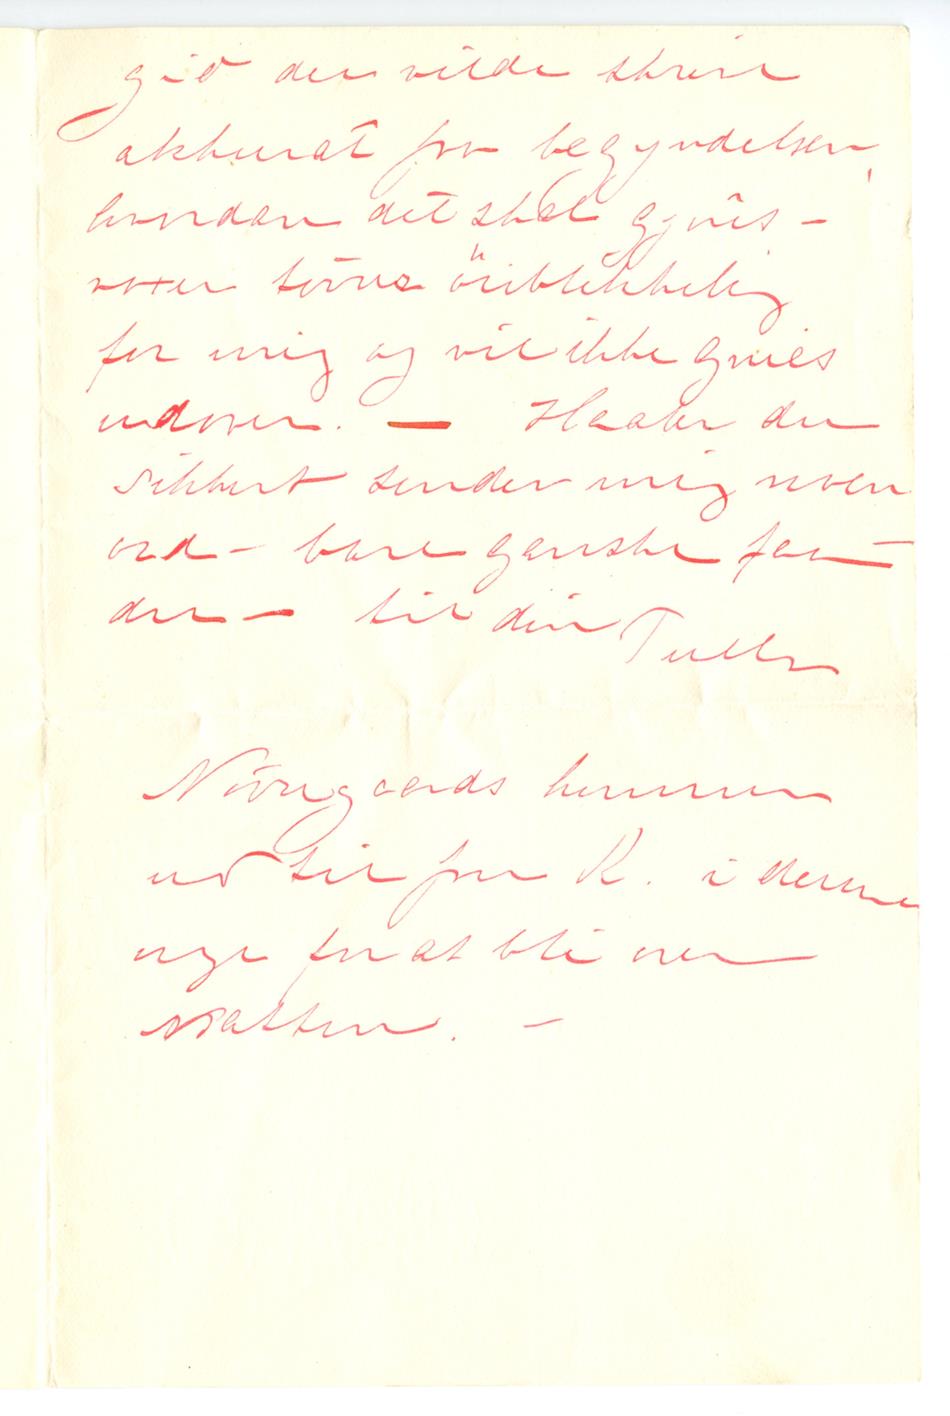 gid du vilde skrive
akkurat fra begyndelsen,
hvordan det skal gjøres –
tørves øieblikkelig
for mig og vil ikke gjøres
udover. — Haaber du
sikkert sender mig noen
ord – bare ganske faa –
du – til din Tulla
Nørregaards kommer
ud til fru R. i denne
uge for at bli over
natten. –